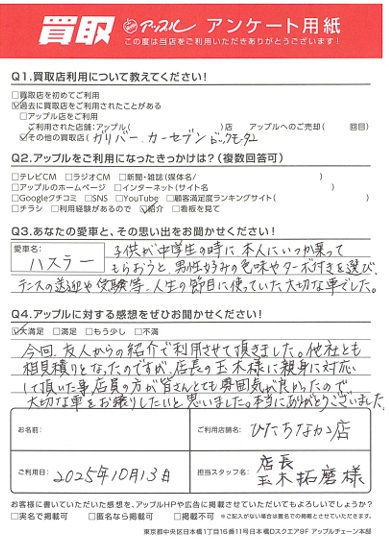 買取 アップル アンケート用紙
この度は当店をご利用いただきありがとうございます!
Q1.買取店利用について教えてください!
□買取店を初めてご利用
☑過去に買取店をご利用されたことがある
□アップル店をご利用
ご利用された店舗:アップル( )店 アップルへのご売却( 回目)
☑その他の買取店(ガリバー、カーセブン ビッグモーター)
Q2.アップルをご利用になったきっかけは?(複数回答可)
□テレビCM □ラジオCM □新聞・雑誌(媒体名/ )
□アップルのホームページ □インターネット(サイト名 )
□Googleクチコミ □SNS □YouTube □顧客満足度ランキングサイト( )
□チラシ □利用経験があるので ☑紹介 □看板を見て
Q3.あなたの愛車と、その思い出をお聞かせください!
愛車名:
ハスラー
子供が中学生の時に本人にいつか乗って
もらおうと、男性好みの色味やターボ付きを選び、
テニスの送迎や受験等、人生の節目に使っていた大切な車でした。
Q4.アップルに対する感想をぜひお聞かせください!
☑大満足 □満足 □もう少し □不満
今回、友人からの紹介で利用させて頂きました。他社とも
相見積りとなったのですが、店長の玉木様に親身に対応
して頂いた事、店員の方が皆さんとても雰囲気が良かったので、
大切な車をお譲りしたいと思いました。本当にありがとうございました。
お名前:
ご利用店舗名:
ひたちなか店
ご利用日:
2025年10月13日
担当スタッフ名:
店長
玉木拓磨様
お客様に書いていただいた感想を、アップルHPや広告に掲載させていただいてもよろしいでしょうか?
□実名で掲載可 □匿名なら掲載可 □掲載不可 ※ご記入がない場合は匿名での掲載とさせていただきます。
東京都中央区日本橋1丁目16番11号日本橋Dスクエア9F アップルチェーン本部